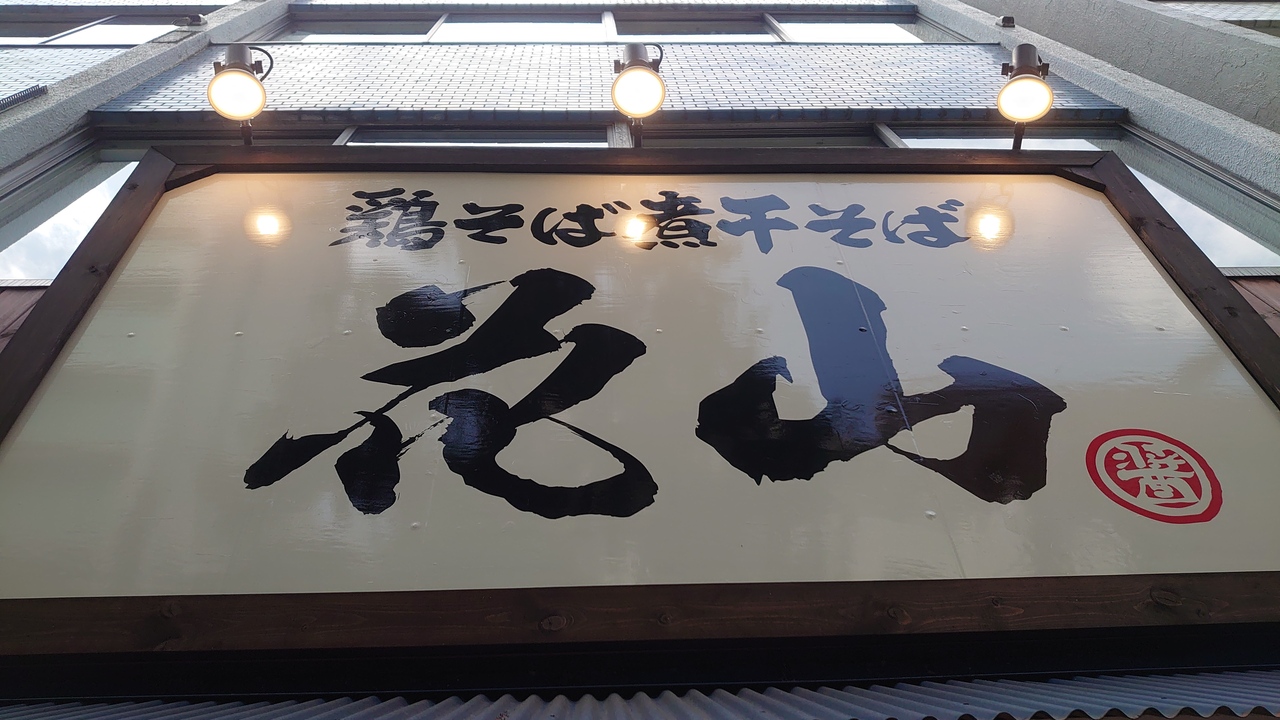 鶏そば煮干そば
花山
醤